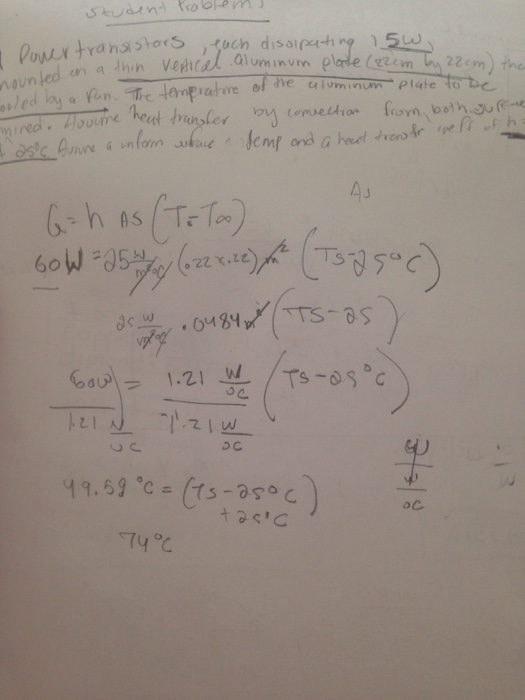 Student Problems
Power transistors, each dissipating 15W,
mounted on a thin vertical aluminum plate (22cm by 22cm) the
cooled by a fan. The temprature of the aluminum plate to be
Assume heat transfer by convection from both
25°C Assume a uniform surface temp and a heat transfr coeff of h =
As
Q = h As (Ts - T∞)
60W = 25 W/m²°C (.22 x .22) m² (Ts - 25°C)
25 W/m²°C .0484 m² (TS - 25)
60W = 1.21 W/°C (TS - 25°C)
1.21 W/°C 1.21 W/°C
W
W
°C
49.59°C = (Ts - 25°C)
+ 25°C
74°C